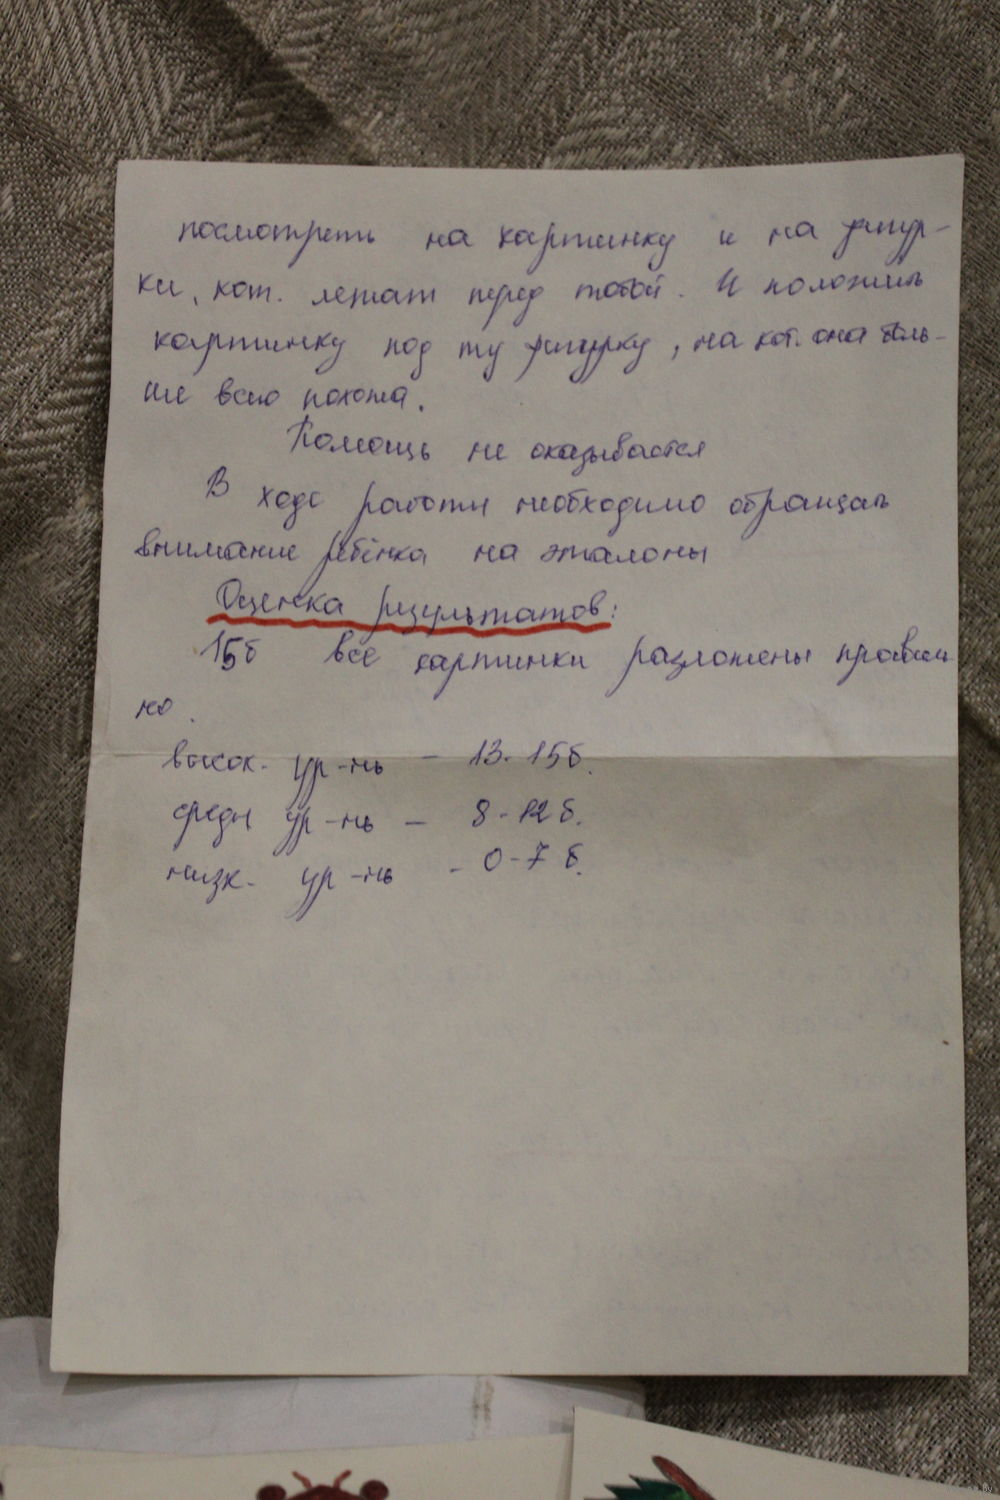 посмотреть на картинку и на фигур-
ки, кот. лежат перед тобой. И положить
картинку под ту фигурку, на кот. она боль-
ше всего похожа.
Помощь не оказывается
В ходе работы необходимо обращать
внимание ребёнка на эталоны
Оценка результатов:
15б все картинки разложены правиль
но.
высок. ур-нь - 13-15б.
средн ур-нь - 8-12б.
низк. ур-нь - 0-7б.